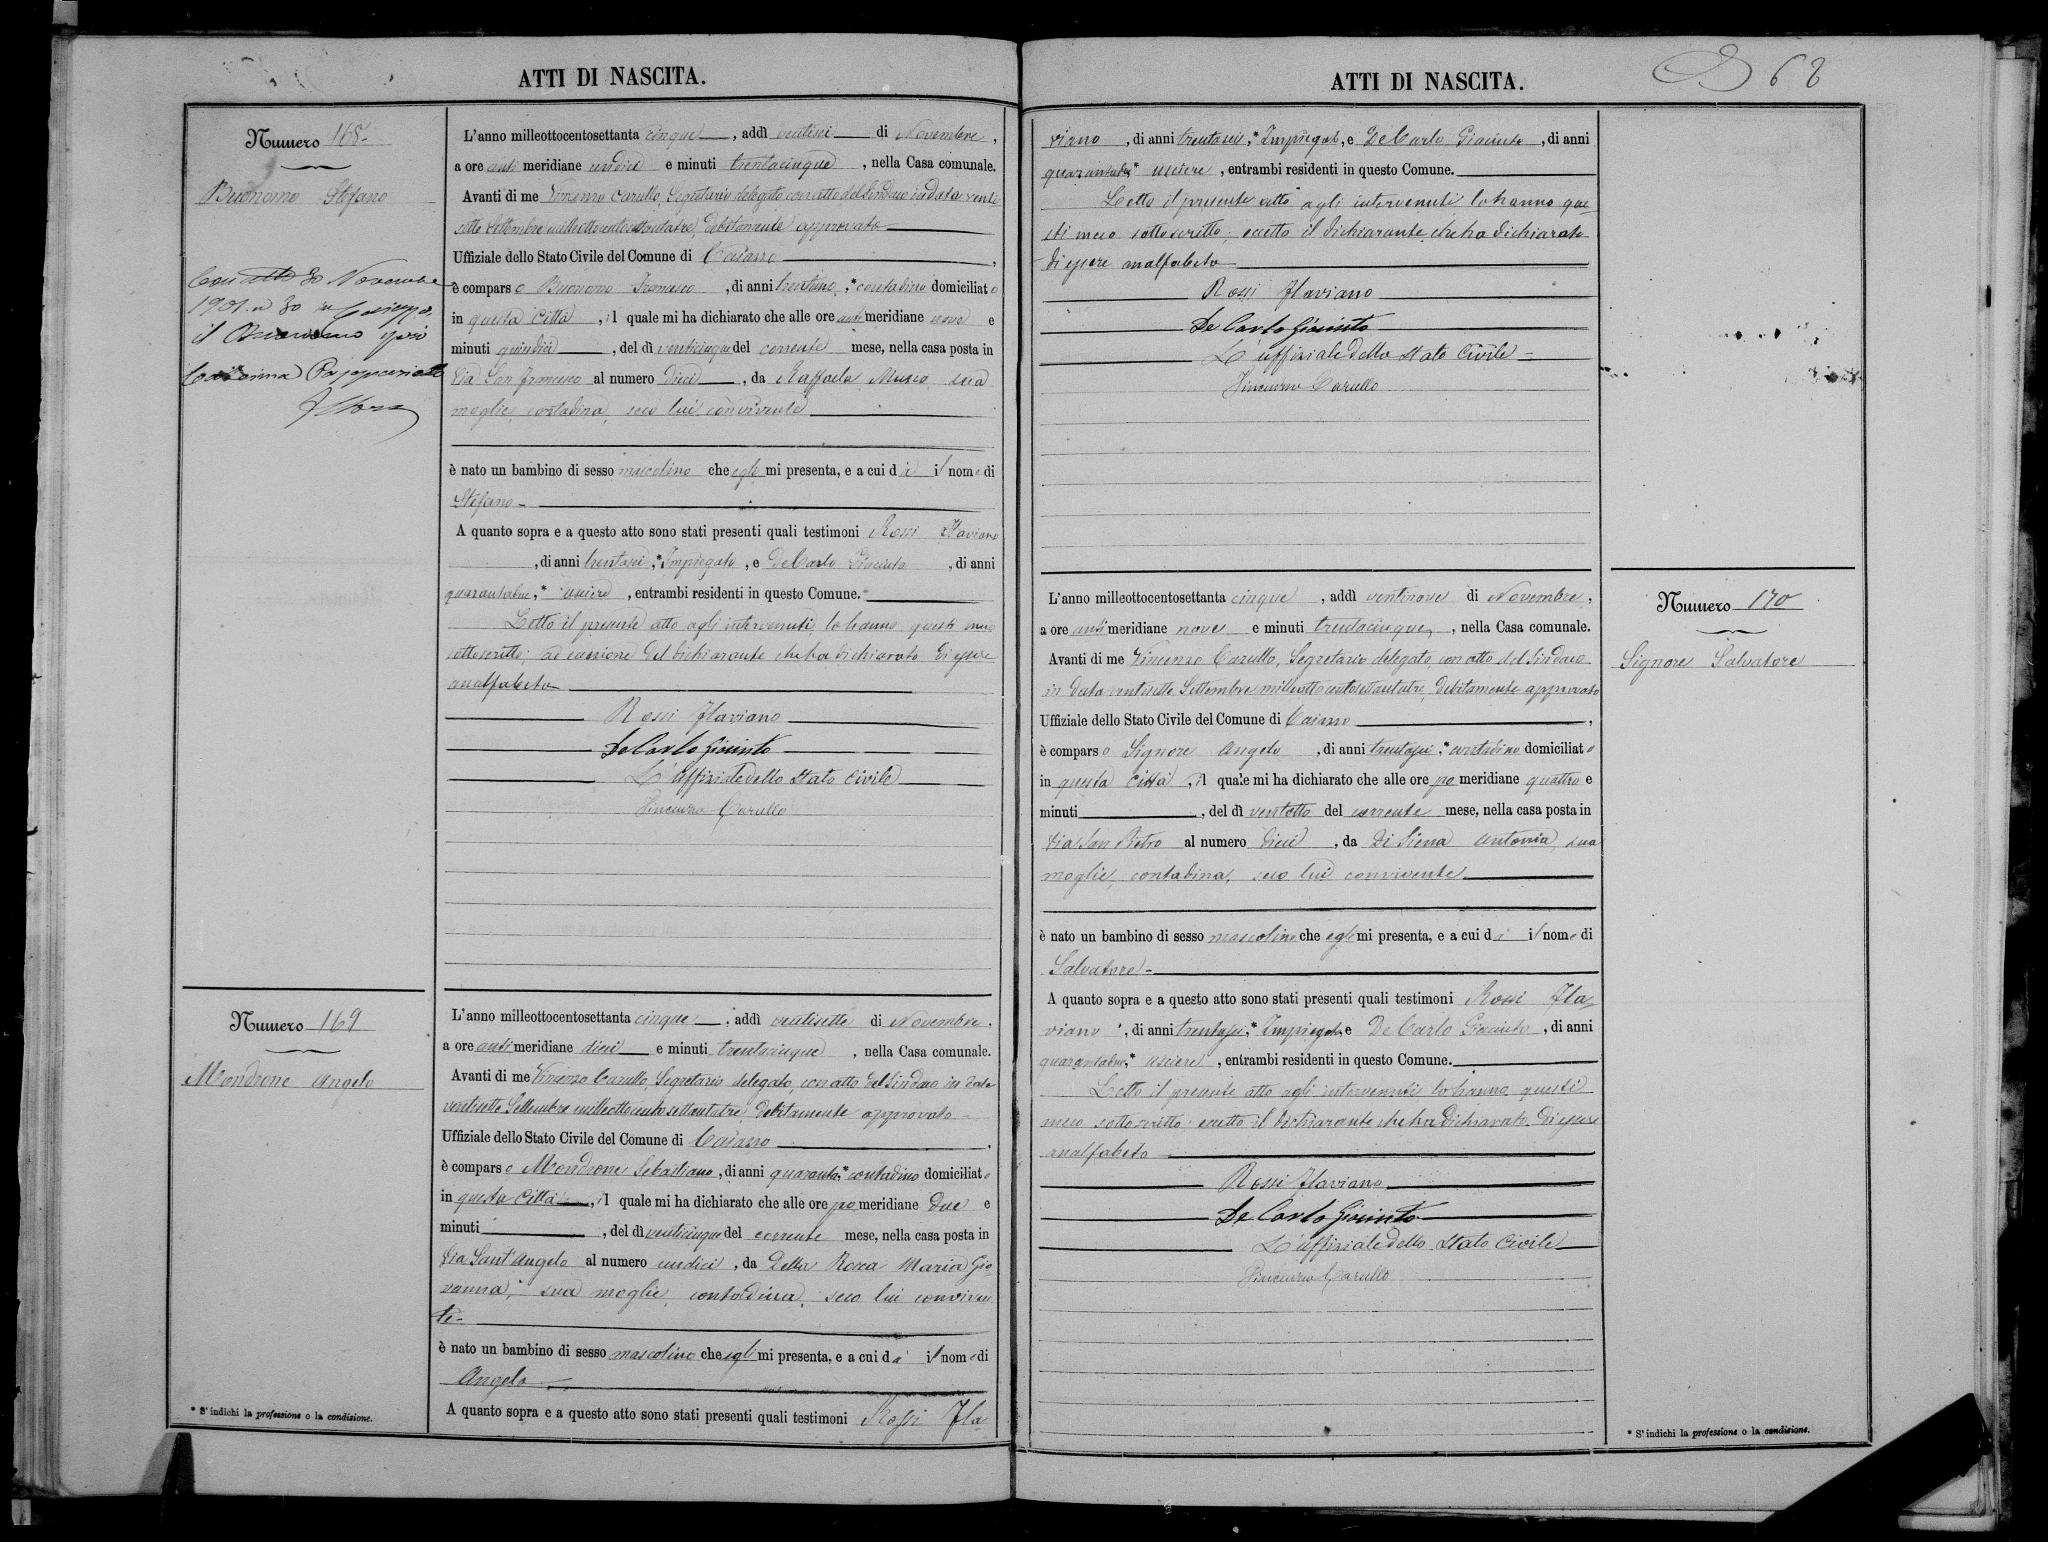 ATTI DI NASCITA.
Numero 168
Buonomo Stefano
Con atto 30 Novembre
1901 N 30
il Buonomo sposò
Caterina
L'anno milleottocentosettanta cinque, addì ventisei di Novembre,
a ore anti meridiane undici e minuti trentacinque, nella Casa comunale.
Avanti di me Vincenzo Carullo, Segretario delegato con atto del Sindaco in data venti
sette Settembre milleottocentosettantatre, debitamente approvato
Uffiziale dello Stato Civile del Comune di Caiazzo,
è comparso Buonomo Francesco, di anni trentuno,* contadino domiciliato
in questa Città, il quale mi ha dichiarato che alle ore anti meridiane nove e
minuti quindici, del dì venticinque del corrente mese, nella casa posta in
Via San Francesco al numero dieci, da Raffaela Musco, sua
moglie, contadina, seco lui convivente
è nato un bambino di sesso mascolino che egli mi presenta, e a cui dà il nome di
Stefano
A quanto sopra e a questo atto sono stati presenti quali testimoni Rossi Flaviano
, di anni trentasei,* Impiegato, e De Carlo Giacinto, di anni
quarantadue,* usciere, entrambi residenti in questo Comune.
Letto il presente atto agli intervenuti, lo hanno questi meco
sottoscritto, ad eccezione del dichiarante che ha dichiarato di essere
analfabeta
Rossi Flaviano
De Carlo Giacinto
L'uffiziale dello Stato Civile
Vincenzo Carullo
Numero 169
Mondrone Angelo
L'anno milleottocentosettanta cinque, addì ventisette di Novembre,
a ore anti meridiane dieci e minuti trentacinque, nella Casa comunale.
Avanti di me Vincenzo Carullo, Segretario delegato, con atto del Sindaco in data
ventisette Settembre milleottocentosettantatre, debitamente approvato
Uffiziale dello Stato Civile del Comune di Caiazzo,
è comparso Mondrone Sebastiano, di anni quaranta,* contadino domiciliato
in questa Città, il quale mi ha dichiarato che alle ore po meridiane due e
minuti, del dì venticinque del corrente mese, nella casa posta in
Via Sant'Angelo al numero undici, da Della Rocca Maria Gio-
vanna, sua moglie, contadina, seco lui conviven
te
è nato un bambino di sesso mascolino che egli mi presenta, e a cui dà il nome di
Angelo
A quanto sopra e a questo atto sono stati presenti quali testimoni Rossi Fla-
* S'indichi la professione o la condizione.
ATTI DI NASCITA.
68
viano, di anni trentasei,* Impiegato, e De Carlo Giacinto, di anni
quarantadue* usciere, entrambi residenti in questo Comune.
Letto il presente atto agli intervenuti lo hanno que-
sti meco sottoscritto, eccetto il dichiarante che ha dichiarato
di essere analfabeta
Rossi Flaviano
De Carlo Giacinto
L'uffiziale dello Stato Civile
Vincenzo Carullo
Numero 170
Signore Salvatore
L'anno milleottocentosettanta cinque, addì ventinove di Novembre,
a ore anti meridiane nove e minuti trentacinque, nella Casa comunale.
Avanti di me Vincenzo Carullo, Segretario delegato, con atto del Sindaco
in data ventisette Settembre milleottocentosettantatre, debitamente approvato
Uffiziale dello Stato Civile del Comune di Caiazzo,
è comparso Signore Angelo, di anni trentasei,* contadino domiciliato
in questa Città, il quale mi ha dichiarato che alle ore po meridiane quattro e
minuti, del dì ventotto del corrente mese, nella casa posta in
Via San Pietro al numero dieci, da Di Siena Antonia, sua
moglie, contadina, seco lui convivente
è nato un bambino di sesso mascolino che egli mi presenta, e a cui dà il nome di
Salvatore
A quanto sopra e a questo atto sono stati presenti quali testimoni Rossi Fla-
viano, di anni trentasei,* Impiegato, e De Carlo Giacinto, di anni
quarantadue,* usciere, entrambi residenti in questo Comune.
Letto il presente atto agli intervenuti lo hanno questi
meco sottoscritto, eccetto il dichiarante che ha dichiarato di essere
analfabeto
Rossi Flaviano
De Carlo Giacinto
L'uffiziale dello Stato Civile
Vincenzo Carullo
* S'indichi la professione o la condizione.